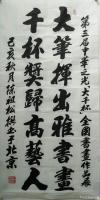 第三届中華之光大千杯全国書画作品展
大筆揮出雅書畫
千杯獎歸高藝人
己亥年月徐祖松撰書于北京